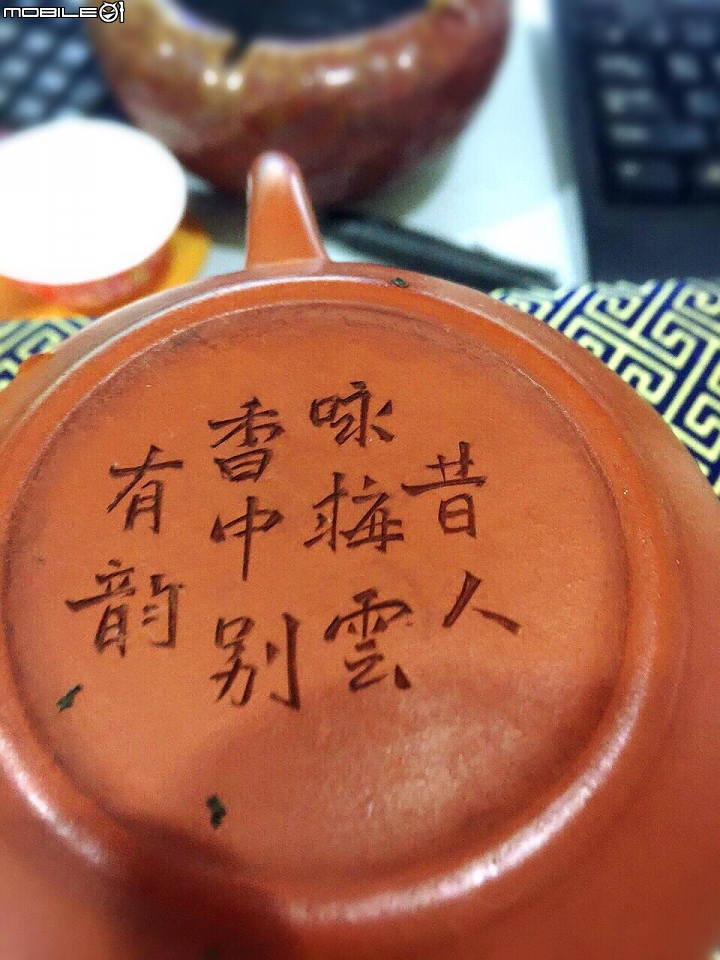 MOBILE01
昔人
咏梅雲
香中别
有韵